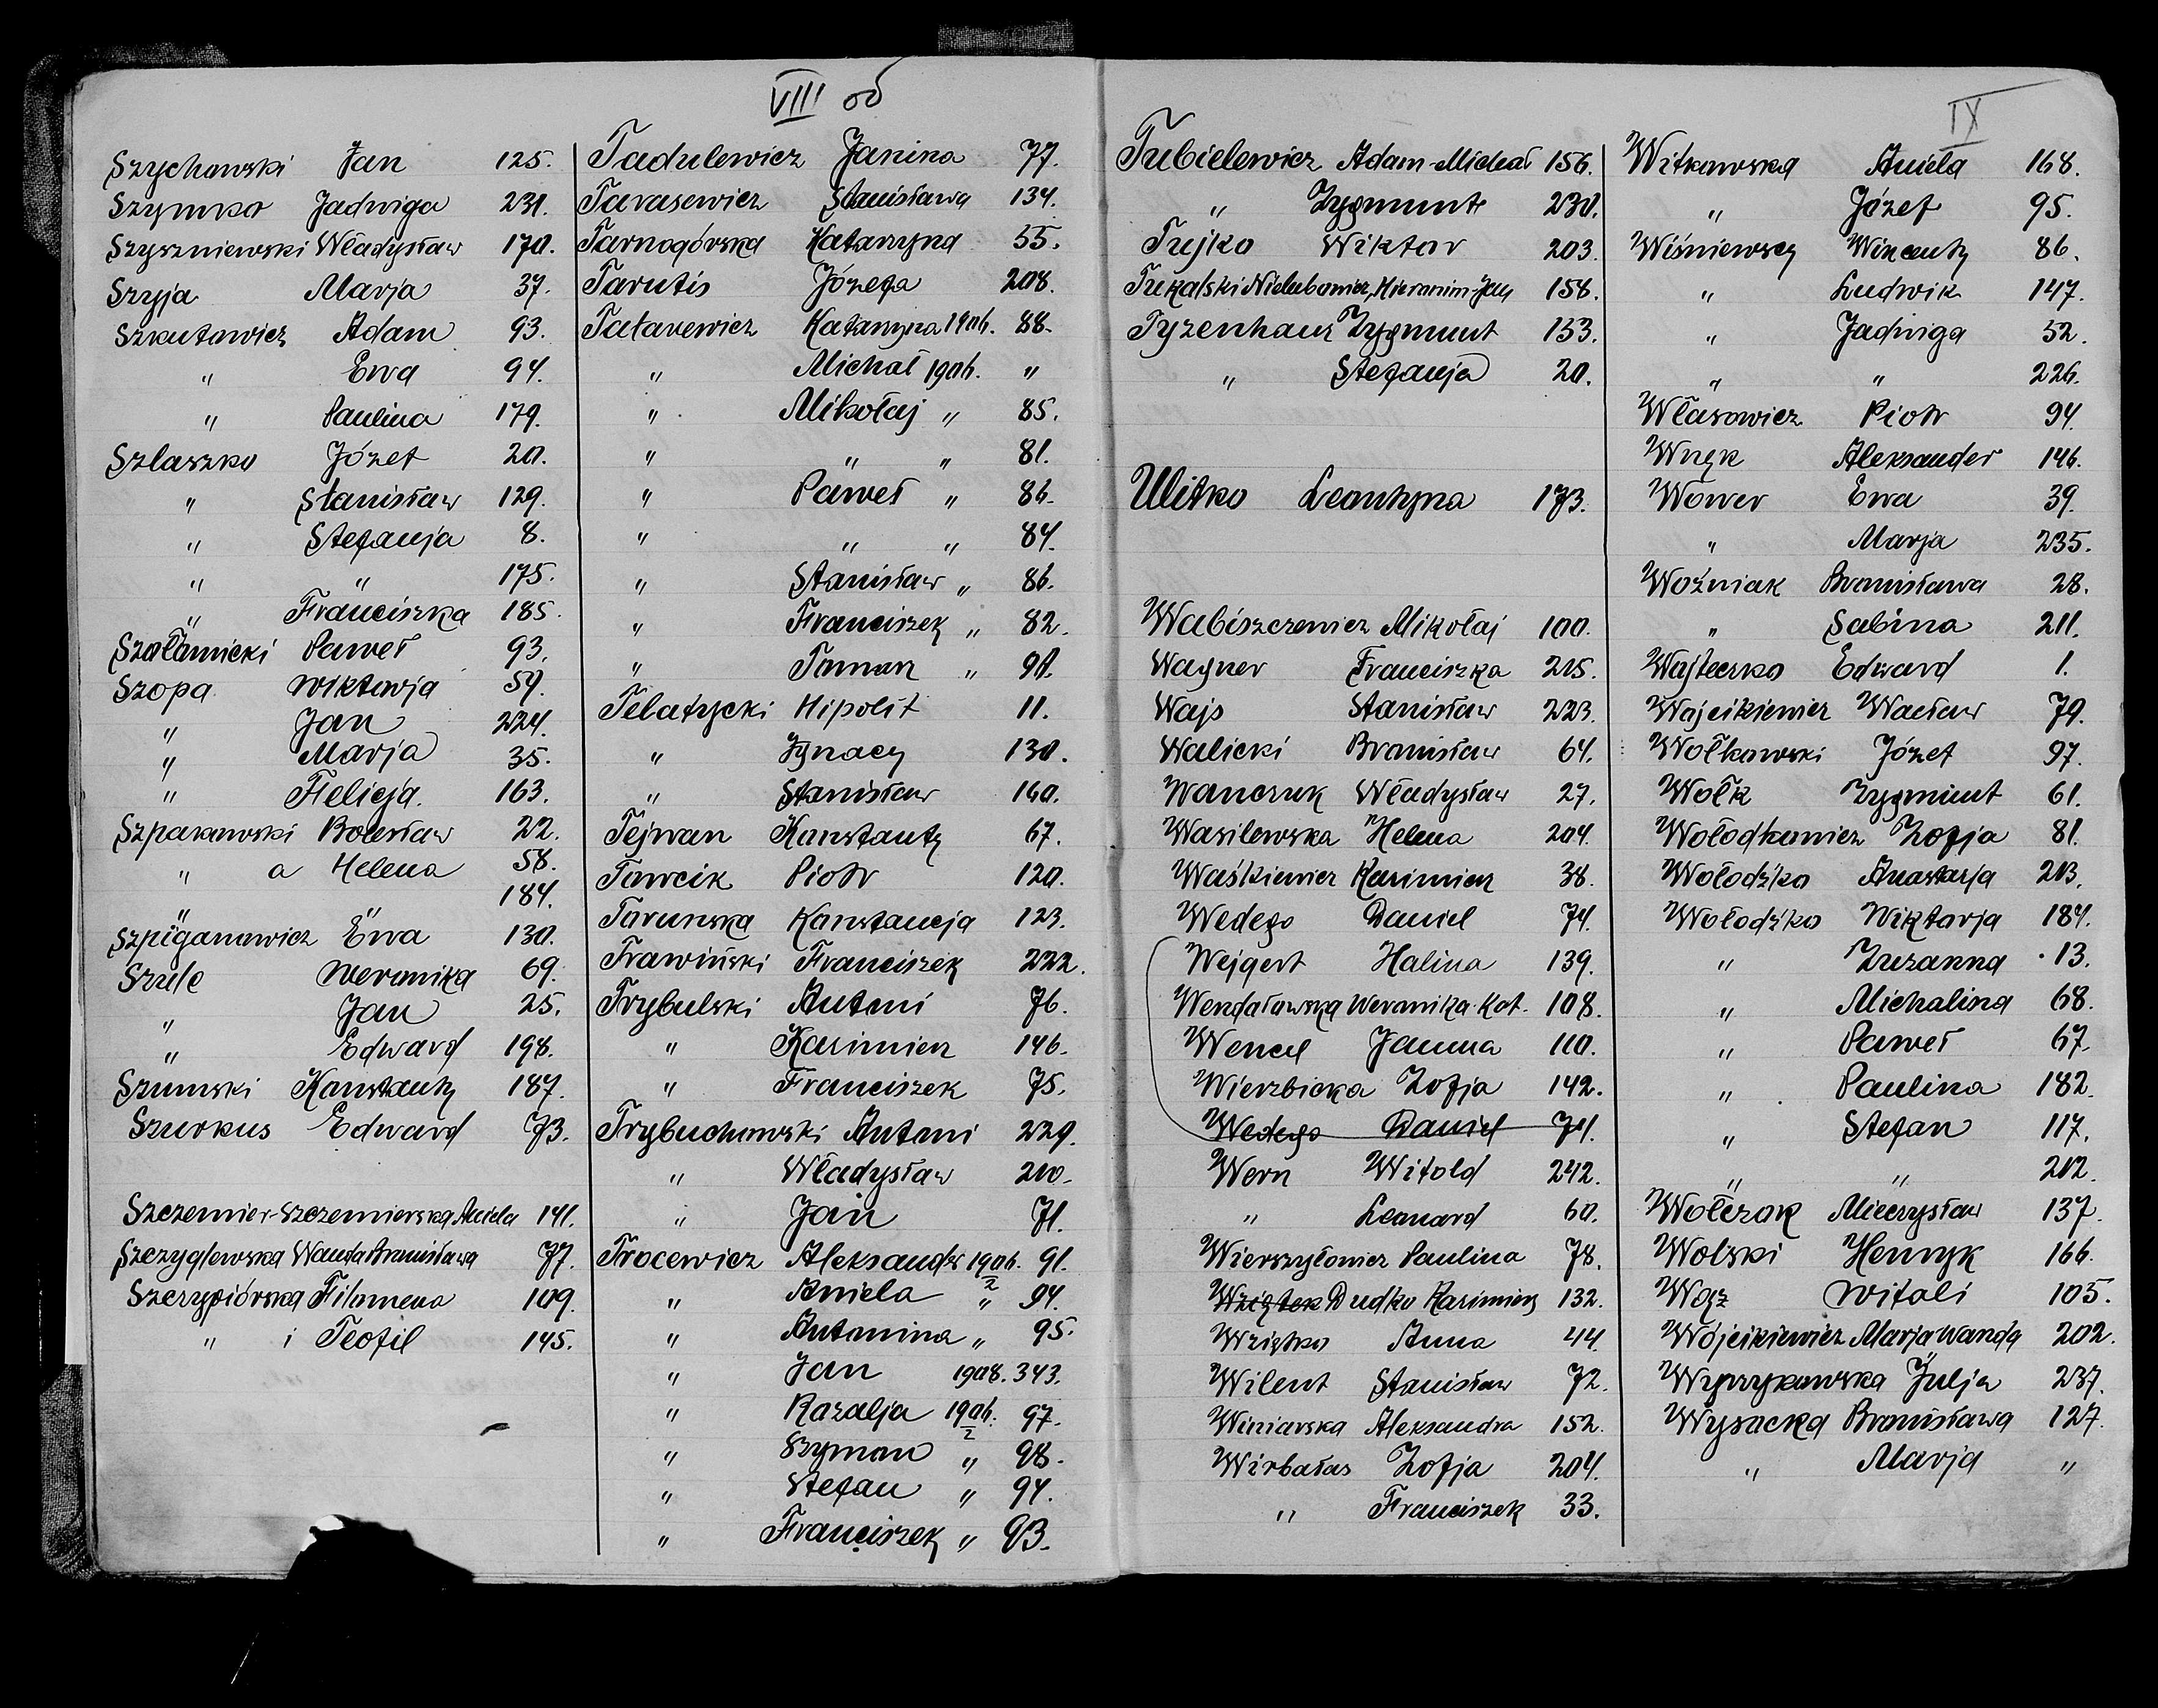 VIII об
Szychowski Jan 125.
Szymko Jadwiga 231.
Szyszniewski Władysław 170.
Szyja Marja 37.
Szkutowicz Adam 93.
" Ewa 94.
" Paulina 179.
Szlaszko Józef 20.
" Stanisław 129.
" Stefanja 8.
" " 175.
" Franciszka 185.
Szołomicki Paweł 93.
Szopa Wiktorja 59.
" Jan 224.
" Marja 35.
" Felicja 163.
Szparkowski Bolesław 22.
" a Helena 58.
" " 184.
Szpiganowicz Ewa 130.
Szulc Weronika 69.
" Jan 25.
" Edward 198.
Szumski Konstanty 187.
Szurkus Edward 73.
Szczemier-Szczemierska Aniela 141.
Szczyglewska Wanda Bronisława 77.
Szczypiórska Filomena 109.
" i Teofil 145.
Tadulewicz Janina 77.
Tarasewicz Stanisława 134.
Tarnogórska Katarzyna 55.
Tarutis Józefa 208.
Tatarewicz Katarzyna 1906. 88.
" Michał 1906. "
" Mikołaj " 85.
" " " 81.
" Paweł " 86.
" " " 84.
" Stanisław " 86.
" Franciszek " 82.
" Roman "
Telatycki Hipolit 11.
" Ignacy 130.
" Stanisław 160.
Tejwan Konstanty 67.
Tawcik Piotr 120.
Torunska Konstancja 123.
Trawiński Franciszek 222.
Trybulski Antoni 76.
" Kazimierz 146.
" Franciszek 75.
Trybuchowski Antoni 229.
" Władysław 210.
" Jan 71.
Trocewicz Aleksandr 1906. 91.
" Aniela " 94.
" Antonina " 95.
" Jan 1908. 343.
" Rozalja 1906. 97.
" Szymon " 98.
" Stefan " 94.
" Franciszek " 93.
IX
Tubielewicz Adam-Michał 156.
" Zygmunt 230.
Tujko Wiktor 203.
Tukalski Nielubowicz, Hieronim-Jan 158.
Tyzenhauz Zygmunt 153.
" Stefanja 20.
Ulitko Leontyna 173.
Wabiszczewicz Mikołaj 100.
Wagner Franciszka 215.
Wajs Stanisław 223.
Walicki Bronisław 64.
Wanczuk Władysław 27.
Wasilewska Helena 204.
Waśkiewicz Kazimierz 38.
Wedego Daniel 74.
Wejgert Halina 139.
Wendołowska Weronika-Kat. 108.
Wencel Janina 110.
Wierzbicka Zofja 142.
Wedego Daniel 74.
Wern Witold 242.
" Leonard 60.
Wierszyłowicz Paulina 78.
Wziątek Dudko Kazimierz 132.
Wziątko Anna 44.
Wilent Stanisław 72.
Winiarska Aleksandra 152.
Wirbałas Zofja 204.
" Franciszek 33.
Witkowska Aniela 168.
" Józef 95.
Wiśniewscy Wincenty 86.
" Ludwik 147.
" Jadwiga 52.
" " 226.
Własowicz Piotr 94.
Wnęk Aleksander 146.
Wower Ewa 39.
" Marja 235.
Woźniak Bronisława 28.
" Sabina 211.
Wojteczko Edward 1.
Wojcikiewicz Wacław 79.
Wołkowski Józef 97.
Wołk Zygmunt 61.
Wołodkowicz Zofja 81.
Wołodźko Anastazja 213.
Wołodźko Wiktorja 184.
" Zuzanna 13.
" Michalina 68.
" Paweł 67.
" Paulina 182.
" Stefan 117.
" " 212.
Wołczok Mieczysław 137.
Wolski Henryk 166.
Woz Witali 105.
Wójcikiewicz Marja Wanda 202.
Wyrzykowska Julja 237.
Wysocka Bronisława 127.
" Marja "